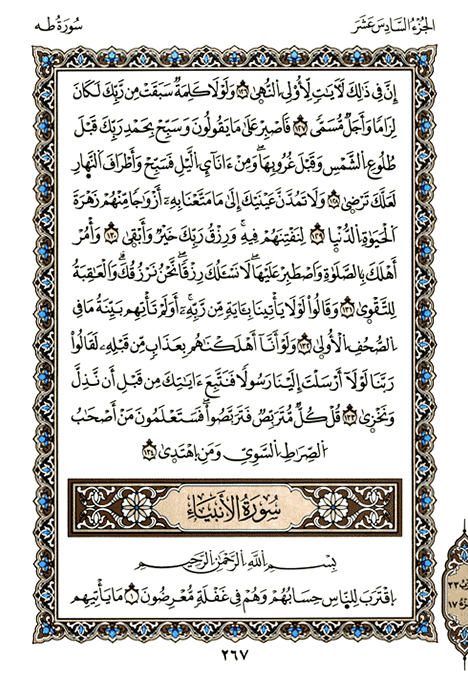 الجزء السادس عشر
سورة طه
إِنَّ فِي ذَٰلِكَ لَآيَاتٍ لِأُولِي النُّهَىٰ ۝١٢٦ وَلَوْلَا كَلِمَةٌ سَبَقَتْ مِن رَّبِّكَ لَكَانَ
لِزَامًا وَأَجَلٌ مُّسَمًّى ۝١٢٧ فَاصْبِرْ عَلَىٰ مَا يَقُولُونَ وَسَبِّحْ بِحَمْدِ رَبِّكَ قَبْلَ
طُلُوعِ الشَّمْسِ وَقَبْلَ غُرُوبِهَا وَمِنْ ءَانَآيِٕ الَّيْلِ فَسَبِّحْ وَأَطْرَافَ النَّهَارِ
لَعَلَّكَ تَرْضَىٰ ۝١٢٨ وَلَا تَمُدَّنَّ عَيْنَيْكَ إِلَىٰ مَا مَتَّعْنَا بِهِۦٓ أَزْوَٰجًا مِّنْهُمْ زَهْرَةَ
الْحَيَوٰةِ الدُّنْيَا ۝١٢٩ لِنَفْتِنَهُمْ فِيهِ وَرِزْقُ رَبِّكَ خَيْرٌ وَأَبْقَىٰ ۝١٣٠ وَأْمُرْ
أَهْلَكَ بِالصَّلَوٰةِ وَاصْطَبِرْ عَلَيْهَا لَا نَسْـَٔلُكَ رِزْقًا نَّحْنُ نَرْزُقُكَ وَالْعَٰقِبَةُ
لِلتَّقْوَىٰ ۝١٣١ وَقَالُوا لَوْلَا يَأْتِينَا بِـَٔايَةٍ مِّن رَّبِّهِۦٓ أَوَلَمْ تَأْتِهِم بَيِّنَةُ مَا فِي
الصُّحُفِ الْأُولَىٰ ۝١٣٢ وَلَوْ أَنَّآ أَهْلَكْنَٰهُم بِعَذَابٍ مِّن قَبْلِهِۦ لَقَالُوا
رَبَّنَا لَوْلَآ أَرْسَلْتَ إِلَيْنَا رَسُولًا فَنَتَّبِعَ ءَايَٰتِكَ مِن قَبْلِ أَن نَّذِلَّ
وَنَخْزَىٰ ۝١٣٣ قُلْ كُلٌّ مُّتَرَبِّصٌ فَتَرَبَّصُوا فَسَتَعْلَمُونَ مَنْ أَصْحَٰبُ
الصِّرَٰطِ السَّوِيِّ وَمَنِ اهْتَدَىٰ ۝١٣٤
سُورَةُ الْأَنْبِيَاءِ
بِسْمِ اللَّهِ الرَّحْمَٰنِ الرَّحِيمِ
اقْتَرَبَ لِلنَّاسِ حِسَابُهُمْ وَهُمْ فِي غَفْلَةٍ مُّعْرِضُونَ ۝١ مَا يَأْتِيهِم
٢٦٧